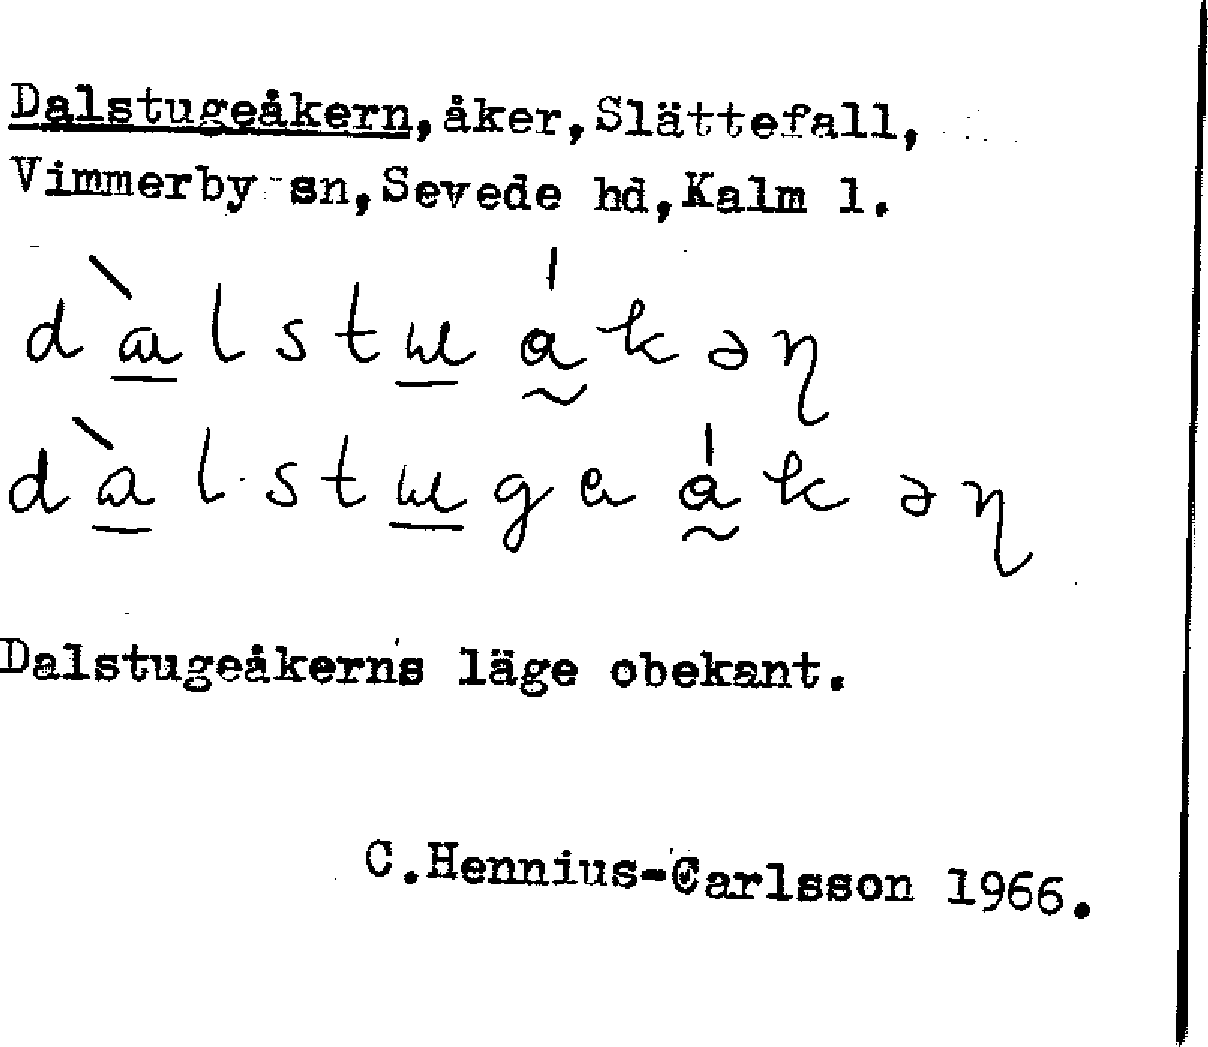 Dalstugeåkern, åker, Slättefall,
Vimmerby sn, Sevede hd, Kalm l.
Dalstugeåkerns läge obekant.
C.Hennius-Carlsson 1966.